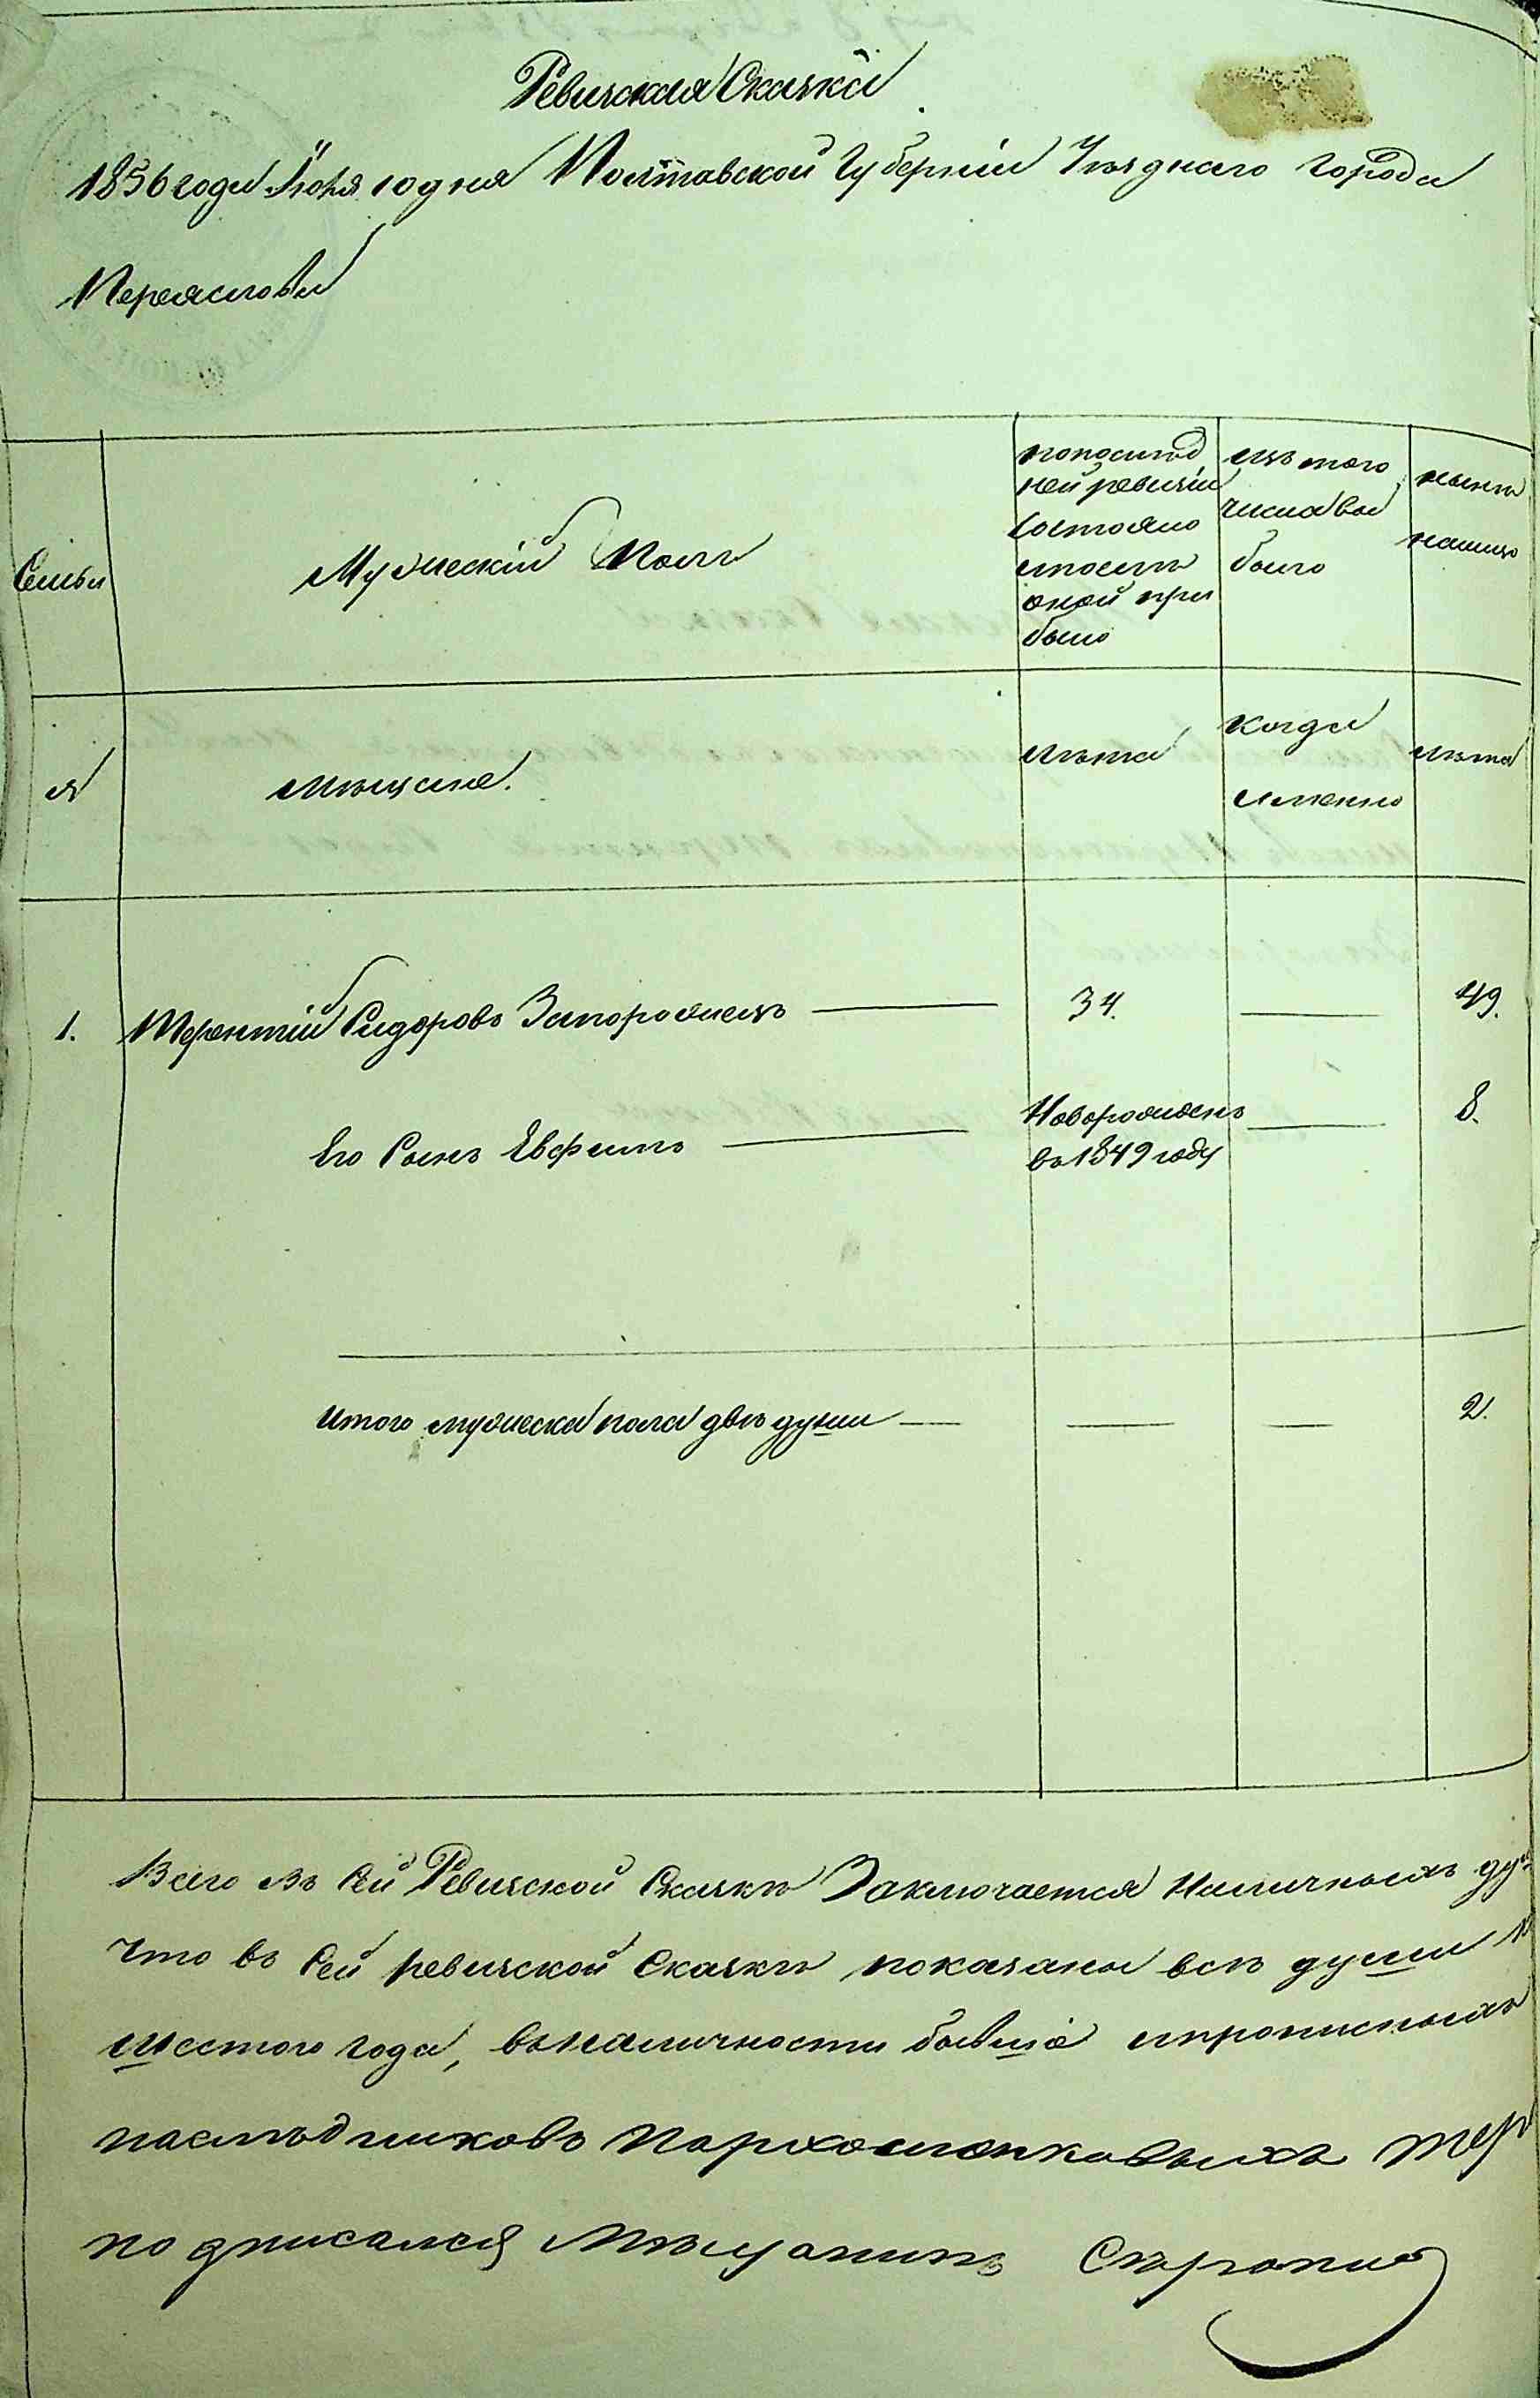 Ревизская Сказка
1856 года Июня 10 дня Полтавской Губерніи Уезднаго города
Переяслова
Семьи
Мужескій Полъ
попослѣд
ней ревизіи
состояло
ипослѣ
оной при
было
изъ того
числа вы
было
нынѣ
налицо
№
мѣщане.
лѣта
когда
именно
лѣта
1. Терентій Сидоровъ Запорожецъ 34. 49.
Его Сынъ Евфимъ Новорожденъ 8.
въ 1849 году
Итого мужеска пола двѣ души 2.
Всего въ Сей Ревизской Сказкѣ Заключается Наличныхъ
что въ Сей ревизской Сказкѣ показаны всѣ души
шестого года, вналичности бывшіе ипрописныхъ
наслѣдниковъ Пархоменковыхъ Тер
подписался Мѣщанинъ